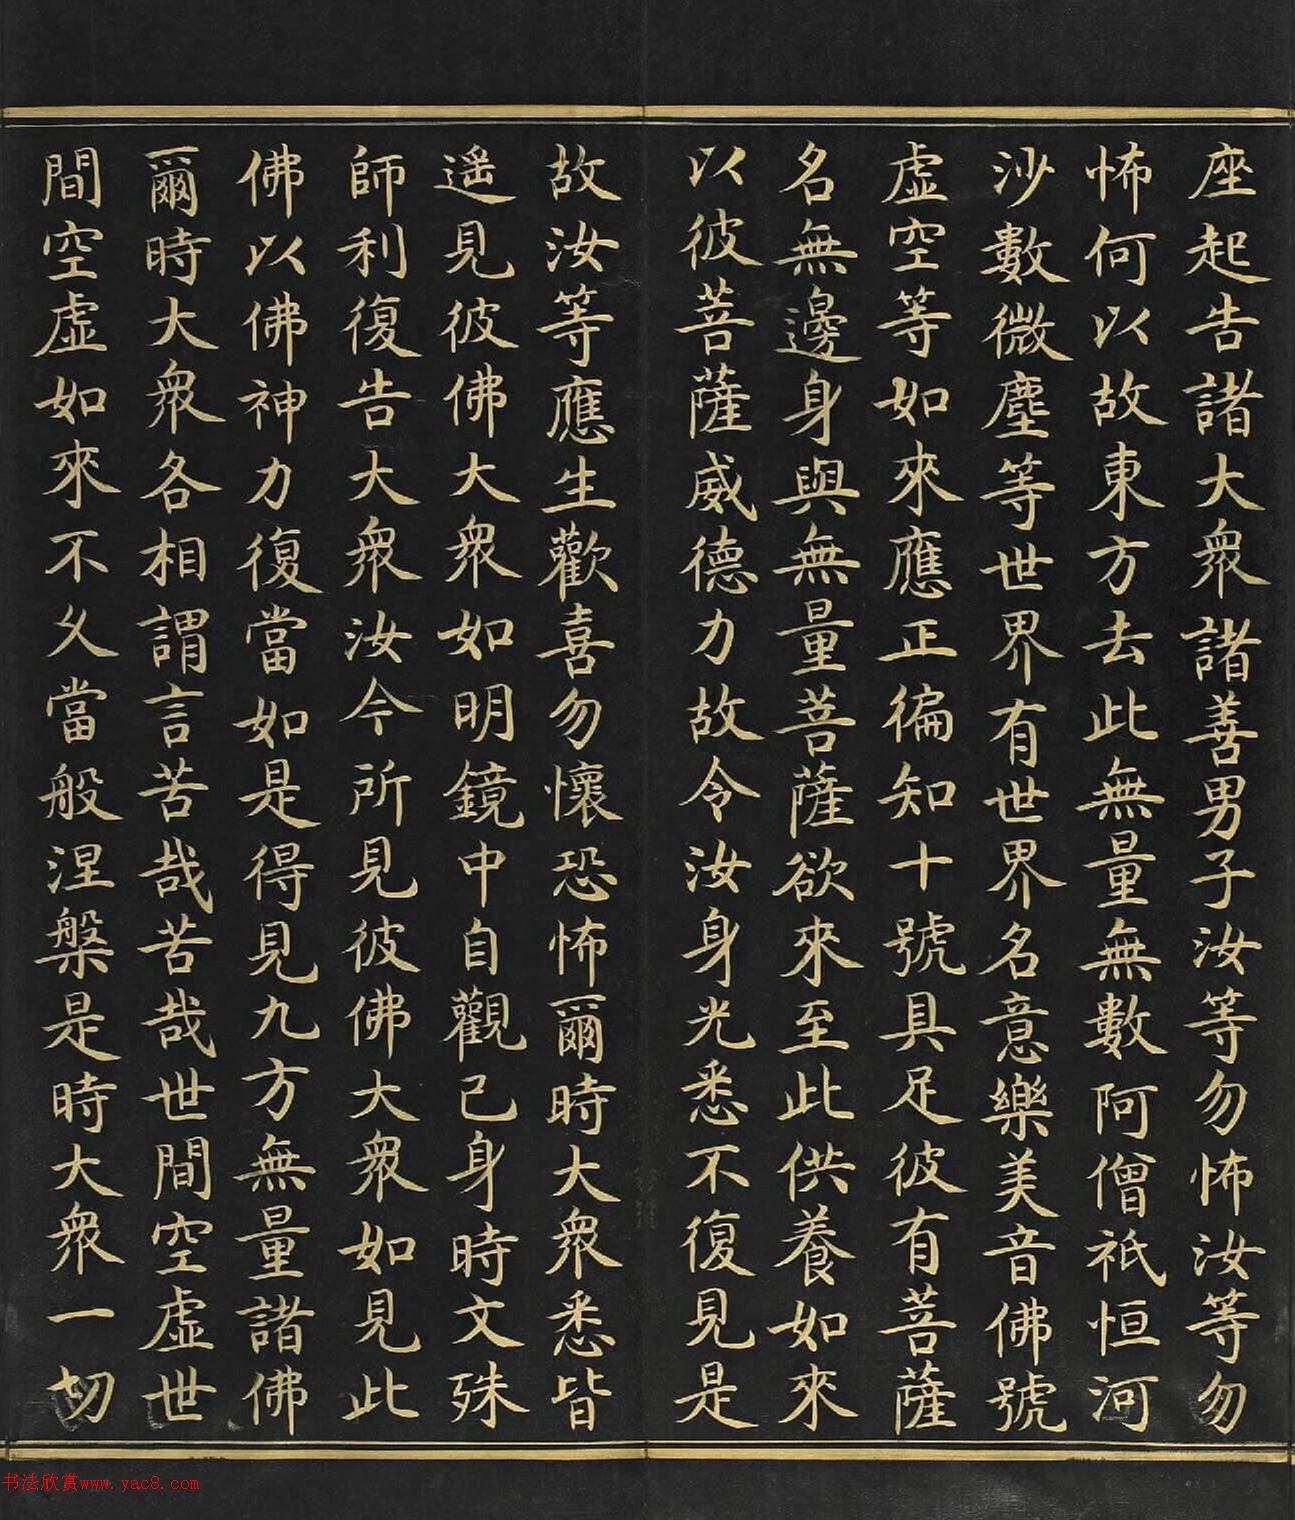 座起告諸大衆諸善男子汝等勿怖汝等勿
怖何以故東方去此無量無數阿僧祇恒河
沙數微塵等世界有世界名意樂美音佛號
虛空等如來應正徧知十號具足彼有菩薩
名無邊身與無量菩薩欲來至此供養如來
以彼菩薩威德力故令汝身光悉不復見是
故汝等應生歡喜勿懷恐怖爾時大衆悉皆
遥見彼佛大衆如明鏡中自觀己身時文殊
師利復告大衆汝今所見彼佛大衆如見此
佛以佛神力復當如是得見九方無量諸佛
爾時大衆各相謂言苦哉苦哉世間空虛世
間空虛如來不久當般涅槃是時大衆一切
书法欣赏www.yac8.com